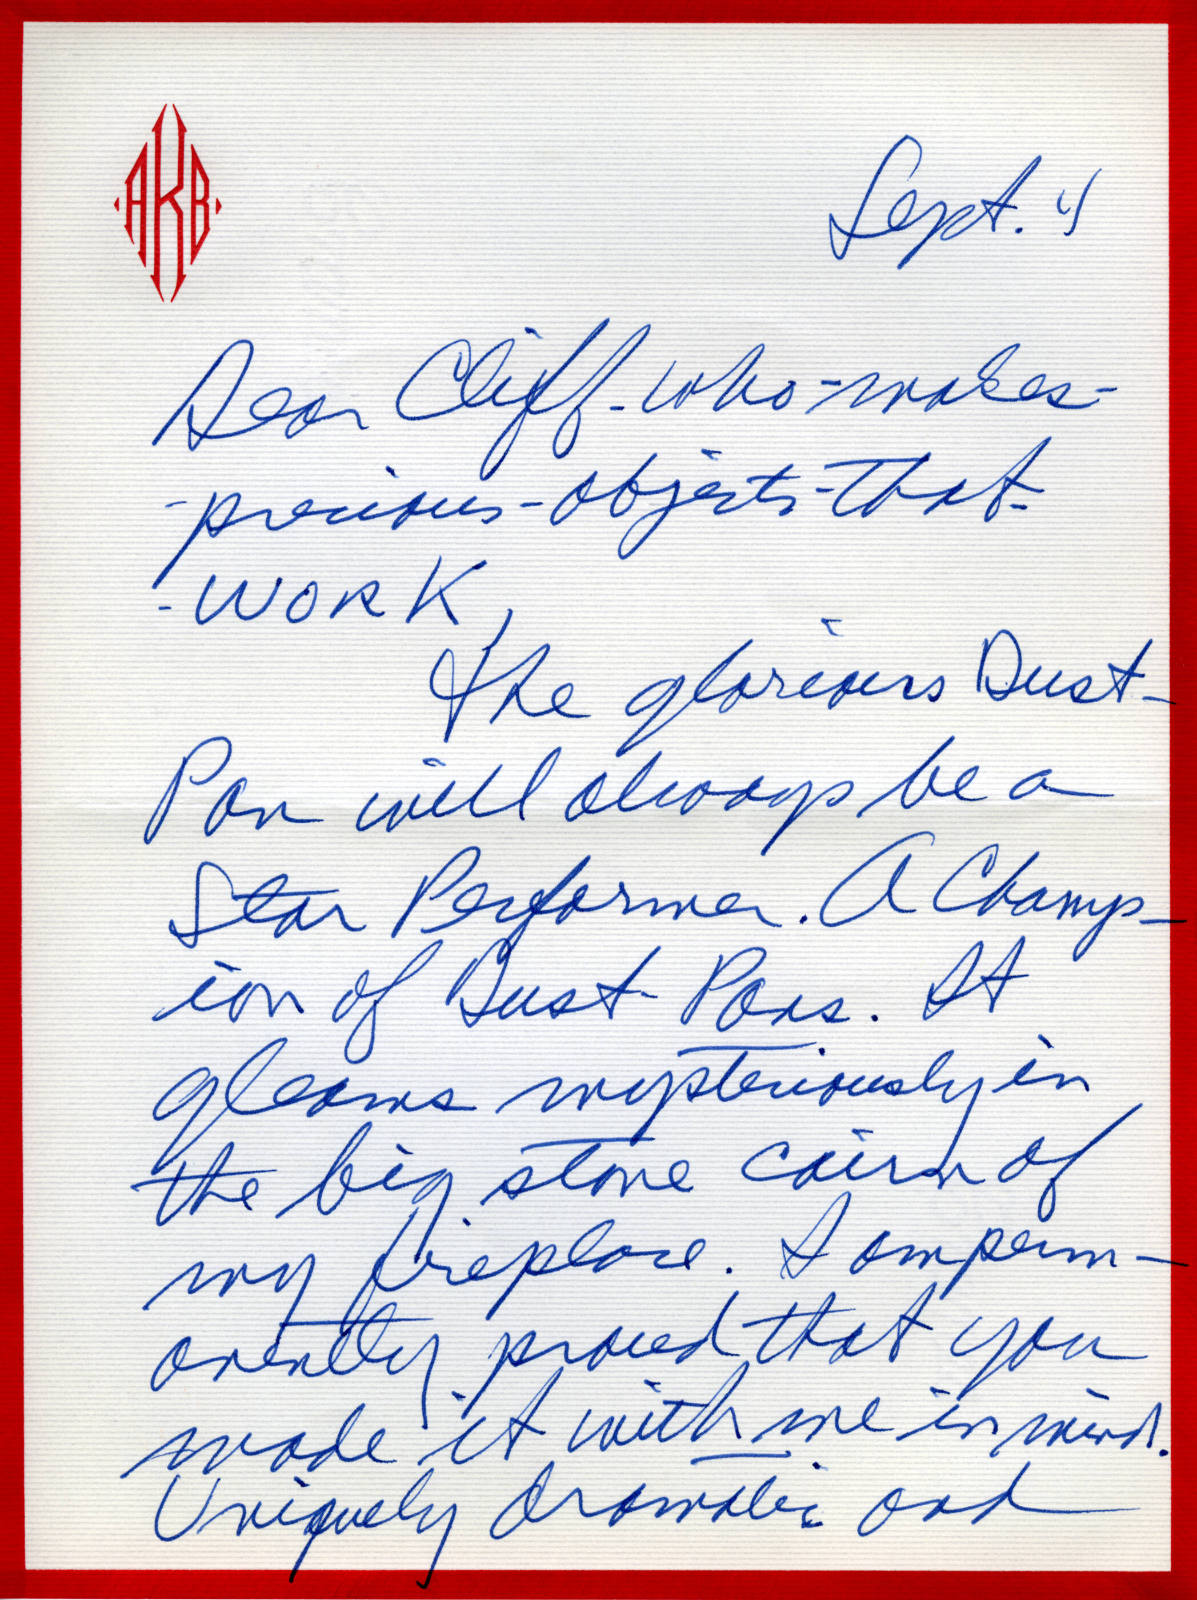 AKB
Sept. 4
Dear Cliff-who-makes-
-precious-objects-that-
-WORK,
The glorious Dust-
Pan will always be a
Star Performer. A Champ-
ion of Dust-Pans. It
gleams mysteriously in
the big stone cairn of
my fireplace. I am perm-
anently proud that you
made it with me in mind.
Uniquely dramatic and